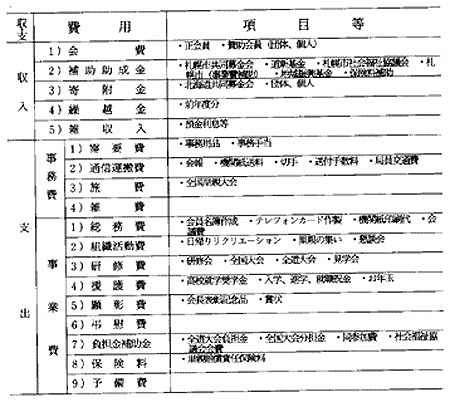 収支 費用 項目等
収入
1) 会費 ・正会員 ・賛助会員(団体、個人)
2) 補助助成金 ・札幌市共同募金会 ・道新基金 ・札幌市社会福祉協議会 ・札幌市(事業費補助) ・地域振興基金 ・保険料補助
3) 寄附金 ・北海道共同募金会 ・団体、個人
4) 繰越金 ・前年度分
5) 雑収入 ・預金利息等
支出
事務費
1) 需要費 ・事務用品 ・事務手当
2) 通信運搬費 ・会報 ・機関紙送料 ・切手 ・送付手数料 ・局員交通費
3) 旅費 ・全国大会
4) 雑費
事業費
1) 総務費 ・会員名簿作成 ・テレフォンカード作製 ・機関紙印刷代 ・会議費
2) 組織活動費 ・日帰りリクリエーション ・の集い ・懇談会
3) 研修費 ・研修会 ・全国大会 ・全道大会 ・見学会
4) 援護費 ・高校就学奨学金 ・入学、進学、就職祝金 ・お年玉
5) 顕彰費 ・会長表彰記念品 ・賞状
6) 弔慰費
7) 負担金補助金 ・全道大会負担金 ・全国大会分担金 ・同参加費 ・社会福祉協議会会費
8) 保険料 ・賠償責任保険料
9) 予備費